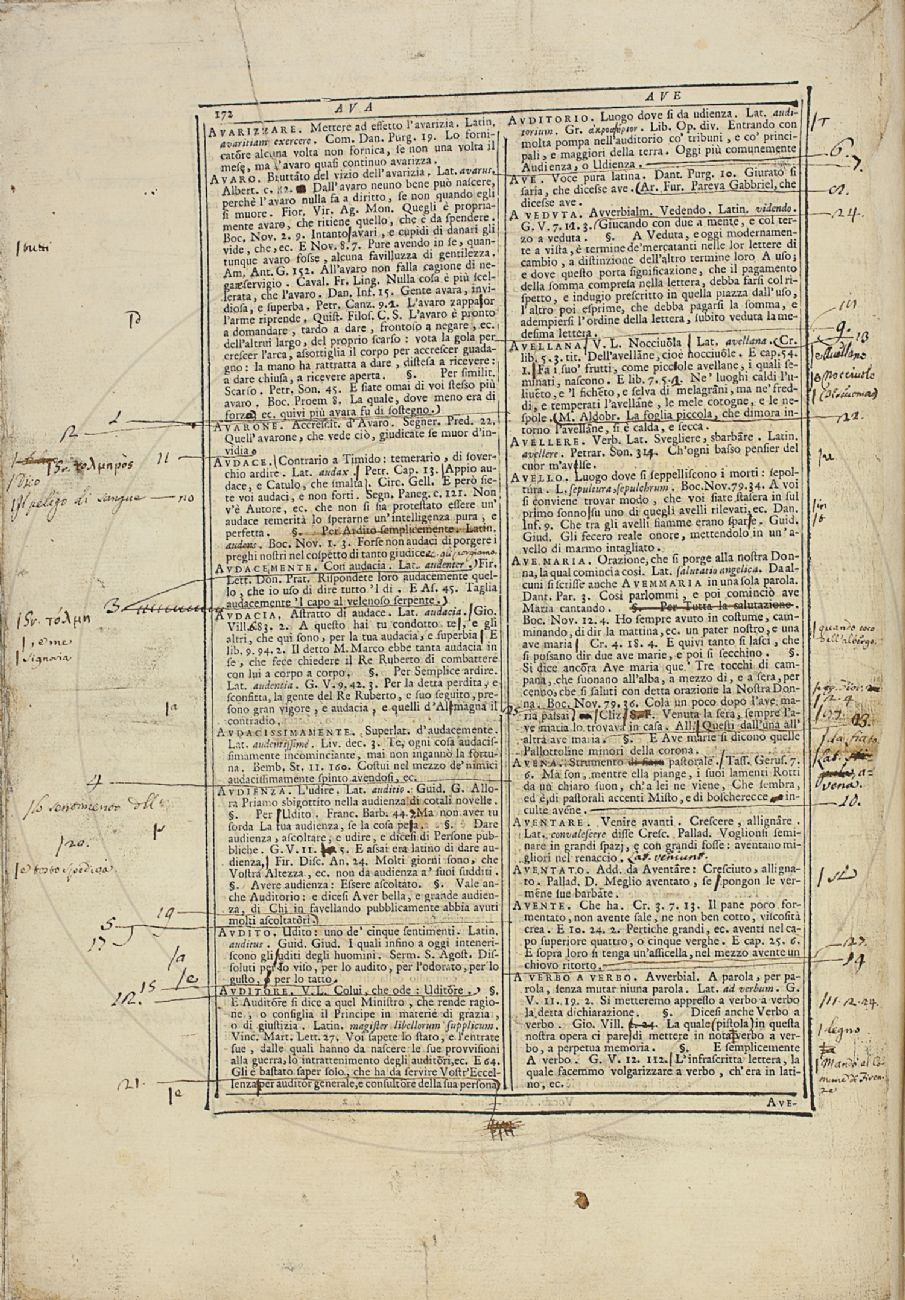 172
AVA
AVE
AVARIZZARE. Mettere ad effetto l'avarizia. Latin.
avaritiam exercere. Com. Dan. Purg. 19. Lo forni-
catore alcuna volta non fornica, se non una volta il
mese, ma l'avaro quasi continuo avarizza.
AVARO. Bruttato del vizio dell'avarizia. Lat. avarus.
Albert. c. 82. Dall'avaro neuno bene può nascere,
perchè l'avaro nulla fa a diritto, se non quando egli
si muore. Fior. Vir. Ag. Mon. Quegli è propria-
mente avaro, che ritiene quello, che è da spendere.
Boc. Nov. 2. 9. Intanto avari, e cupidi di danari gli
vide, che, ec. E Nov. 8. 7. Pure avendo in se, quan-
tunque avaro fosse, alcuna favilluzza di gentilezza.
Am. Ant. G. 152. All'avaro non falla cagione di ne-
gare servigio. Caval. Fr. Ling. Nulla cosa è più scel-
lerata, che l'avaro. Dan. Inf. 15. Gente avara, invi-
diosa, e superba. Petr. Canz. 9. 2. L'avaro zappator
l'arme riprende. Quist. Filos. C. S. L'avaro è pronto
a domandare, tardo a dare, frontoso a negare, ec.
dell'altrui largo, del proprio scarso: vota la gola per
crescer l'arca, assottiglia il corpo per accrescer guada-
gno: la mano ha rattratta a dare, distesa a ricevere:
a dare chiusa, a ricevere aperta. §. Per similit.
Scarso. Petr. Son. 45. E siate omai di voi stesso più
avaro. Boc. Proem 8. La quale, dove meno era di
forza, ec. quivi più avara fu di sostegno.
AVARONE. Accrescit. d'Avaro. Segner. Pred. 22.
Quell'avarone, che vede ciò, giudicate se muor d'in-
vidia.
AVDACE. Contrario a Timido: temerario, di sover-
chio ardire. Lat. audax. Petr. Cap. 13. Appio au-
dace, e Catulo, che smalta. Circ. Gell. E però sie-
te voi audaci, e non forti. Segn. Paneg. c. 121. Non
v'è Autore, ec. che non si ha protestato essere un'
audace temerità lo sperarne un'intelligenza pura, e
perfetta. §. Per Ardito semplicemente. Latin.
audens. Boc. Nov. 1. 3. Forse non audaci di porgere i
preghi nostri nel cospetto di tanto giudice
AVDACEMENTE. Con audacia. Lat. audenter. Fir.
Lett. Don. Prat. Rispondete loro audacemente quel-
lo, che io uso di dire tutto 'l dì. E As. 45. Taglia
audacemente 'l capo al velenoso serpente.
AVDACIA, Astratto di audace. Lat. audacia. Gio.
Vill. 83. 2. A questo hai tu condotto te, e gli
altri, che qui sono, per la tua audacia, e superbia. E
lib. 9. 94. 2. Il detto M. Marco ebbe tanta audacia in
se, che fece chiedere il Re Ruberto di combattere
con lui a corpo a corpo. §. Per Semplice ardire.
Lat. audentia. G. V. 9. 42. 3. Per la detta perdita, e
sconfitta, la gente del Re Ruberto, e suo seguito, pre-
sono gran vigore, e audacia, e quelli d'Alemagna il
contradio.
AVDACISSIMAMENTE. Superlat. d'audacemente.
Lat. audentissimè. Liv. dec. 3. Te, ogni cosa audacis-
simamente incominciante, mai non ingannò la fortu-
na. Bemb. St. 11. 160. Costui nel mezzo de' nimici
audacissimamente spinto avendosi, ec.
AVDIENZA. L'udire. Lat. auditio. Guid. G. Allo-
ra Priamo sbigottito nella audienza di cotali novelle.
§. Per Udito. Franc. Barb. 44. Ma non aver tu
sorda La tua audienza, se la cosa pesa. §. Dare
audienza, ascoltare, e udire, e dicesi di Persone pub-
bliche. G. V. 11. 5. E assai era latino di dare au-
dienza. Fir. Disc. An. 24. Molti giorni sono, che
Vostra Altezza, ec. non da audienza a' suoi sudditi.
§. Avere audienza: Essere ascoltato. §. Vale an-
che Auditorio: e dicesi Aver bella, e grande audien-
za, di Chi in favellando pubblicamente abbia avuti
molti ascoltatori.
AVDITO. Udito: uno de' cinque sentimenti. Latin.
auditus. Guid. Giud. I quali infino a oggi inteneri-
scono gli uditi degli huomini. Serm. S. Agost. Dis-
soluti per lo viso, per lo audito, per l'odorato, per lo
gusto, per lo tatto.
AVDITORE. V. L. Colui, che ode: Uditore. §.
E Auditore si dice a quel Ministro, che rende ragio-
ne, o consiglia il Principe in materie di grazia,
o di giustizia. Latin. magister libellorum supplicum.
Vinc. Mart. Lett. 27. Voi sapete lo stato, e l'entrate
sue, dalle quali hanno da nascere le sue provvisioni
alla guerra, lo intrattenimento degli auditori, ec. E 64.
Gli è bastato saper solo, che ha da servire Vostr'Eccel-
lenza per auditor generale, e consultore della sua persona
AVDITORIO. Luogo dove si da udienza. Lat. audi-
torium. Gr. Lib. Op. div. Entrando con
molta pompa nell'auditorio co' tribuni, e co' princi-
pali, e maggiori della terra. Oggi più comunemente
Audienza, o Udienza.
AVE. Voce pura latina. Dant. Purg. 10. Giurato si
saria, che dicesse ave. Ar. Fur. Pareva Gabbriel, che
dicesse ave.
A VEDUTA. Avverbialm. Vedendo. Latin. videndo.
G. V. 7. 12. 3. Giucando con due a mente, e col ter-
zo a veduta. §. A Veduta, e oggi modernamen-
te a vista, è termine de' mercatanti nelle lor lettere di
cambio, a distinzione dell'altro termine loro A uso;
e dove questo porta significazione, che il pagamento
della somma compresa nella lettera, debba farsi col ri-
spetto, e indugio prescritto in quella piazza dall'uso,
l'altro poi esprime, che debba pagarsi la somma, e
adempiersi l'ordine della lettera, subito veduta la me-
desima lettera.
AVELLANA. V. L. Nocciuola. Lat. avellana. Cr.
lib. 5. 3. tit. Dell'avellane, cioè nocciuole. E cap. 54.
1. Fa i suo' frutti, come piccole avellane, i quali se-
minati, nascono. E lib. 7. 5. 2. Ne' luoghi caldi l'u-
liveto, e 'l ficheto, e selva di melagrani, ma ne' fred-
di, e temperati l'avellane, le mele cotogne, e le ne-
spole. M. Aldobr. La foglia piccola, che dimora in-
torno l'avellane, si è calda, e secca.
AVELLERE. Verb. Lat. Svegliere, sbarbare. Latin.
avellere. Petrar. Son. 314. Ch'ogni basso pensier del
cuor m'avulse.
AVELLO. Luogo dove si seppelliscono i morti: sepol-
tura. L. sepultura, sepulchrum. Boc. Nov. 79. 34. A voi
si conviene trovar modo, che voi siate stasera in sul
primo sonno su uno di quegli avelli rilevati, ec. Dan.
Inf. 9. Che tra gli avelli fiamme erano sparse. Guid.
Giud. Gli fecero reale onore, mettendolo in un'a-
vello di marmo intagliato.
AVEMARIA. Orazione, che si porge alla nostra Don-
na, la qual comincia così. Lat. salutatio angelica. Da al-
cuni si scrisse anche AVEMMARIA in una sola parola.
Dant. Par. 3. Così parlommi, e poi cominciò ave
Maria cantando. §. Per Tutta la salutazione.
Boc. Nov. 12. 4. Ho sempre avuto in costume, cam-
minando, di dir la mattina, ec. un pater nostro, e una
ave maria. Cr. 4. 18. 4. E quivi tanto si lasci, che
si possano dir due ave marie, e poi si secchino. §.
Si dice ancora Ave maria que' Tre tocchi di cam-
pana, che suonano all'alba, a mezzo dì, e a sera, per
cenno, che si saluti con detta orazione la Nostra Don-
na. Boc. Nov. 79. 36. Colà un poco dopo l'ave ma-
ria passai Cliz. Venuta la sera, sempre l'a-
ve maria lo trovava in casa. All. Questi dall'una all'
altra ave maria. §. E Ave marie si dicono quelle
Pallottoline minori della corona.
AVENA. Strumento di fiato pastorale. Tass. Gerus. 7.
6. Ma son, mentre ella piange, i suoi lamenti Rotti
da un chiaro suon, ch'a lei ne viene, Che sembra,
ed è, di pastorali accenti Misto, e di boscherecce in-
culte avene.
AVENTARE. Venire avanti. Crescere, allignare.
Lat. convalescere disse Cresc. Pallad. Voglionsi semi-
nare in grandi spazj, e con grandi fosse: aventano mi-
gliori nel renaccio.
AVENTATO. Add. da Aventare: Cresciuto, alligna-
to. Pallad. D. Meglio aventato, se pongon le ver-
mene sue barbate.
AVENTE. Che ha. Cr. 3. 7. 13. Il pane poco for-
mentato, non avente sale, ne non ben cotto, viscosità
crea. E 10. 24. 2. Pertiche grandi, ec. aventi nel ca-
po superiore quattro, o cinque verghe. E cap. 25. 6.
E sopra loro si tenga un'asticella, nel mezzo avente un
chiovo ritorto.
A VERBO A VERBO. Avverbial. A parola, per pa-
rola, senza mutar niuna parola. Lat. ad verbum. G.
V. 11. 19. 2. Si metteremo appresso a verbo a verbo
la detta dichiarazione. §. Dicesi anche Verbo a
verbo. Gio. Vill. La quale pistola in questa
nostra opera ci pare di mettere in nota verbo a ver-
bo, a perpetua memoria. §. E semplicemente
A verbo. G. V. 12. 112. L'infrascritta lettera, la
quale facemmo volgarizzare a verbo, ch'era in lati-
no, ec.
AVE-
tutti
12
11
Gr. τολμηρὸς
pelago di sangue
10
3
Gr. τόλμη
Signoria
4
20.
5
19
17
15
21.
6.
7.
24.
9.
13
22.
10.
23.
14
11. 2. 24.
legno